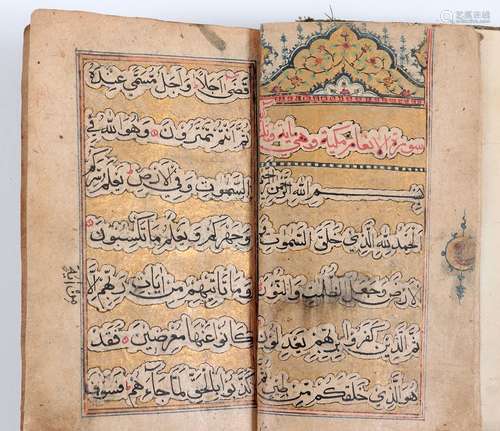 سورة الانعام مكية وهي مايه
بسم الله الرحمن الرحيم
الحمد لله الذي خلق السموت و
الارض وجعل الظلمات والنور
ثم الذين كفروا بربهم يعدلون
هو الذي خلقكم من طين ثم
قضى اجلا واجل مسمى عنده
ثم انتم تمترون وهو الله في
السموت وفي الارض يعلم سركم
وجهركم ويعلم ما تكسبون
وما تاتيهم من ايات ربهم الا
من اية
كانوا عنها معرضين فقد
كذبوا بالحق لما جاءهم فسوف